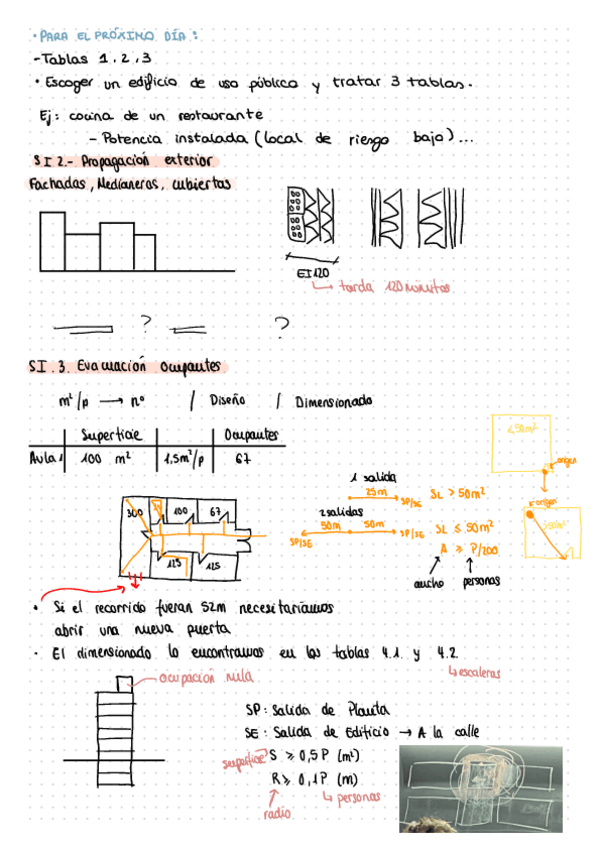 • PARA EL PRÓXIMO DÍA :
- Tablas 1, 2, 3
• Escoger un edificio de uso público y tratar 3 tablas.
Ej: cocina de un restaurante
- Potencia instalada (local de riesgo bajo)...
SI 2.- Propagación exterior
Fachadas, Medianeros, cubiertas
EI120
tarda 120 minutos
? ?
SI.3. Evacuación Ocupantes
m²/p → nº / Diseño / Dimensionado
Superficie Ocupantes
Aula 1 100 m² 1,5m²/p 67
origen
1 salida
25m SP/SE SL > 50m²
2 salidas
50m 50m SP/SE SP/SE SL ≤ 50m²
origen
A ≥ P/200
ancho personas
300 100 67
125 125
• Si el recorrido fueran 52m necesitaríamos
abrir una nueva puerta
• El dimensionado lo encontramos en las tablas 4.1. y 4.2.
escaleras
ocupación nula
SP: Salida de Planta
SE: Salida de Edificio → A la calle
superficie S ≥ 0,5P (m²)
R ≥ 0,1P (m)
personas
radio